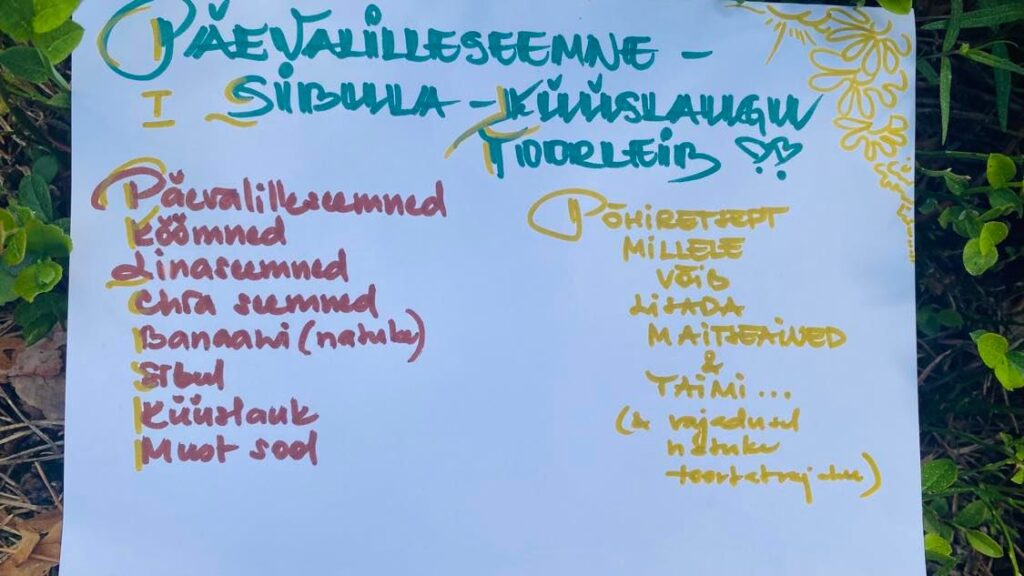 PÄEVALILLESEEMNE -
I SIBULA - KÜÜSLAUGU
TOORLEIB
Päevalilleseemned
Köömned
Linaseemned
Chia seemned
Banaani (natuke)
Sibul
Küüslauk
Must sool
PÕHIRETSEPT
MILLELE
VÕIB
LISADA
MAITSEAINED
&
TAIMI...
(& vajadusel
natuke
toortatrajahu)